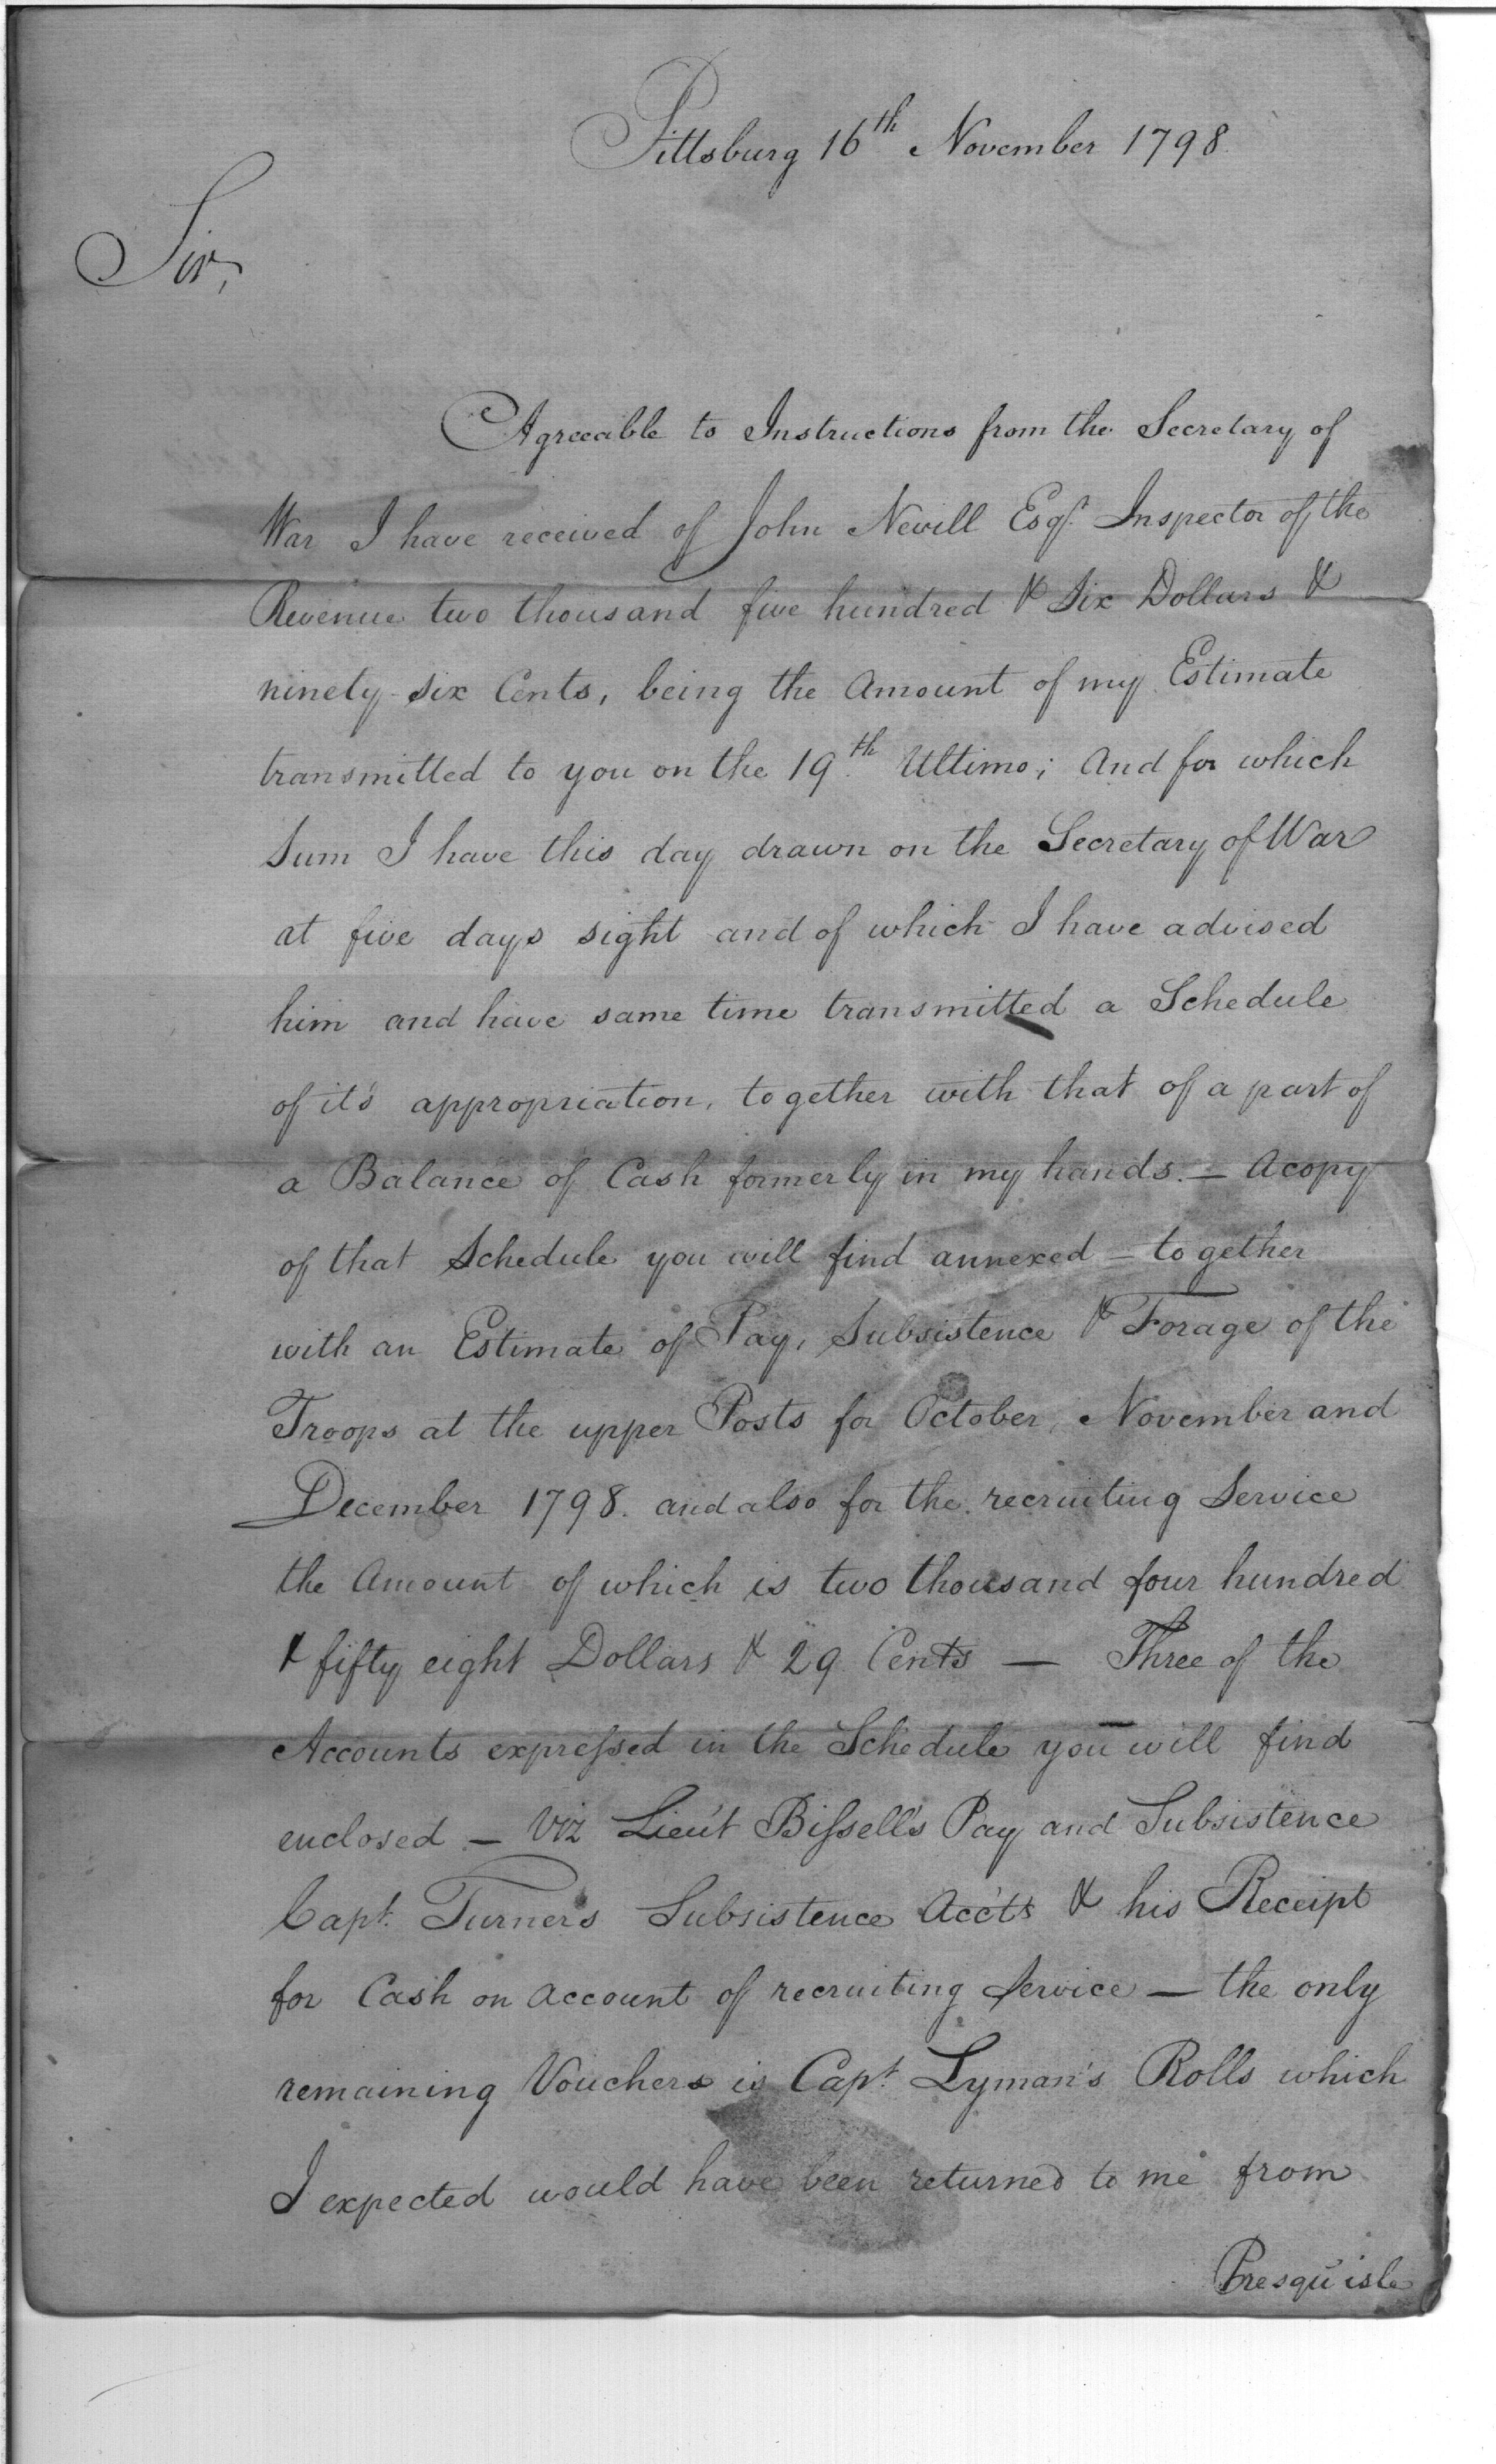 Pittsburg 16th November 1798
Sir,
Agreeable to Instructions from the Secretary of
War I have received of John Nevill Esqr. Inspector of the
Revenue two thousand five hundred & Six Dollars &
ninety six Cents, being the Amount of my Estimate
transmitted to you on the 19th Ultimo; And for which
Sum I have this day drawn on the Secretary of War
at five days sight and of which I have advised
him and have same time transmitted a Schedule
of it's appropriation, together with that of a part of
a Balance of Cash formerly in my hands. — A copy
of that Schedule you will find annexed — together
with an Estimate of Pay, Subsistence & Forage of the
Troops at the upper Posts for October, November and
December 1798. and also for the recruiting Service
the Amount of which is two thousand four hundred
& fifty eight Dollars & 29 Cents — Three of the
Accounts expressed in the Schedule you will find
enclosed — Viz Lieu't Bissell's Pay and Subsistence
Capt. Turner's Subsistence Acc'ts & his Receipt
for Cash on Account of recruiting Service — the only
remaining Vouchers is Capt. Lyman's Rolls which
I expected would have been returned to me from
Presqu'isle